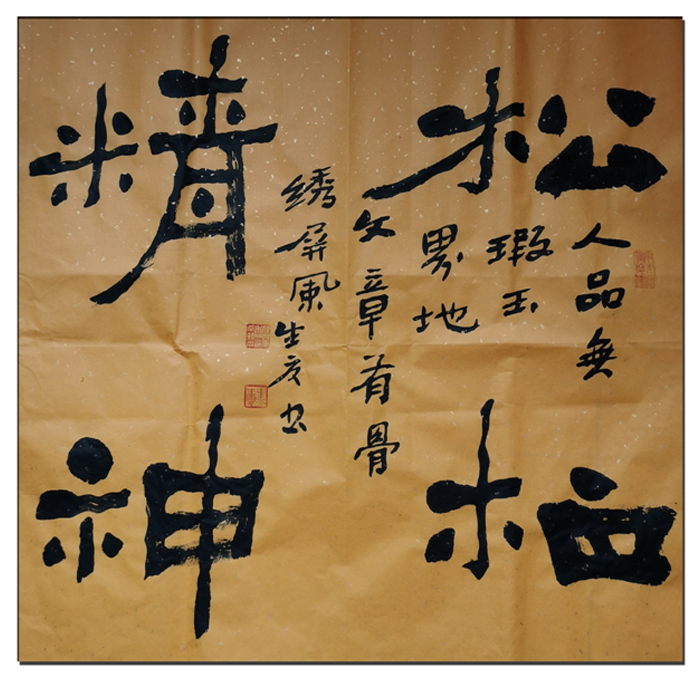 松柏
人品無
瑕玉
界地
文章有骨
绣屏風
精神